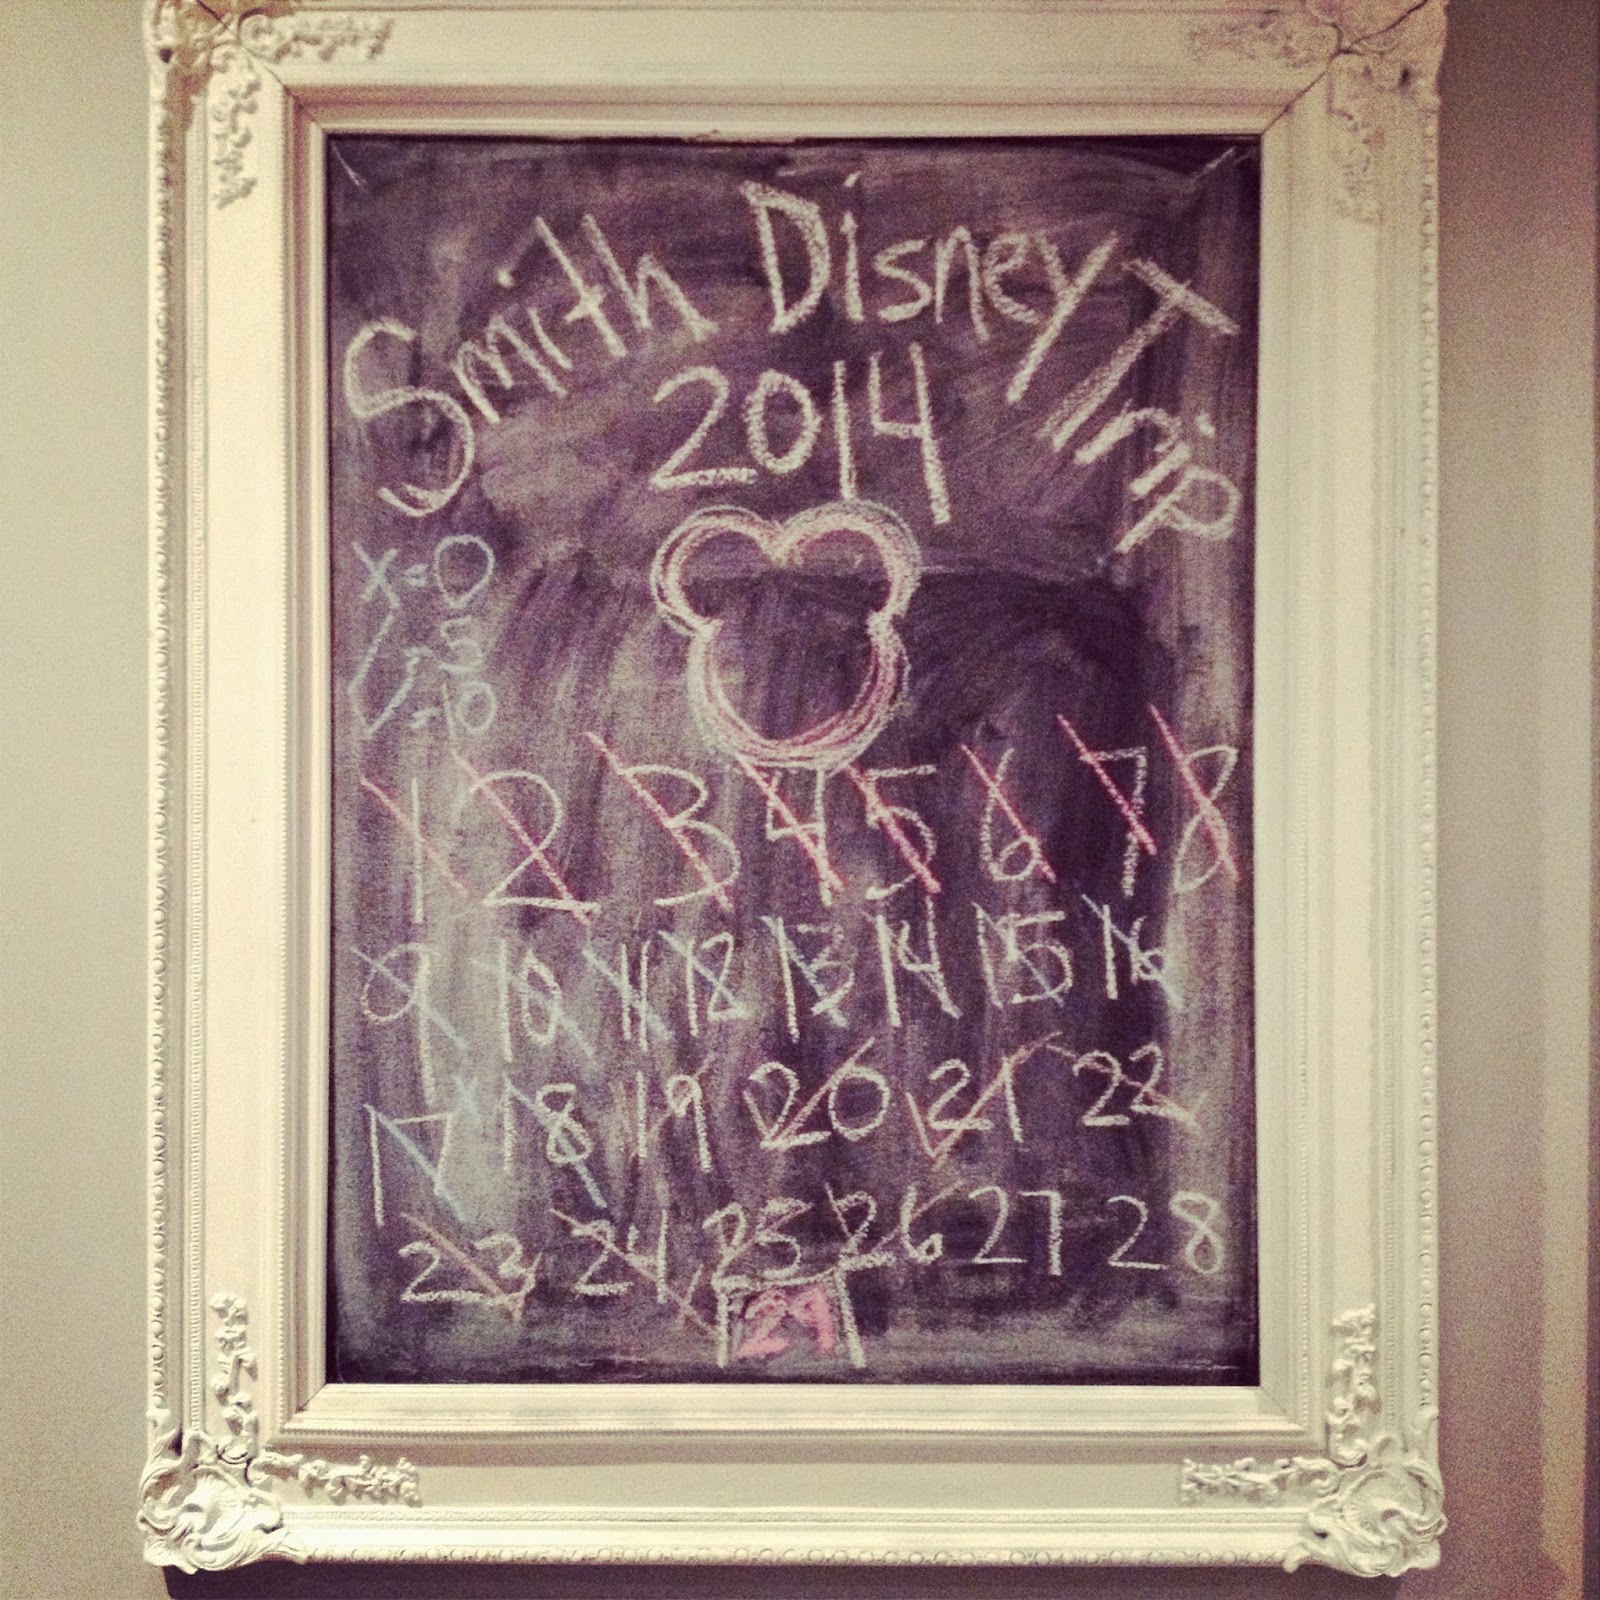 Smith Disney Trip
2014
X = 0
/ = 5
\/ = 10
1 2 3 4 5 6 7 8
9 10 11 12 13 14 15 16
17 18 19 20 21 22
23 24 25 26 27 28
29